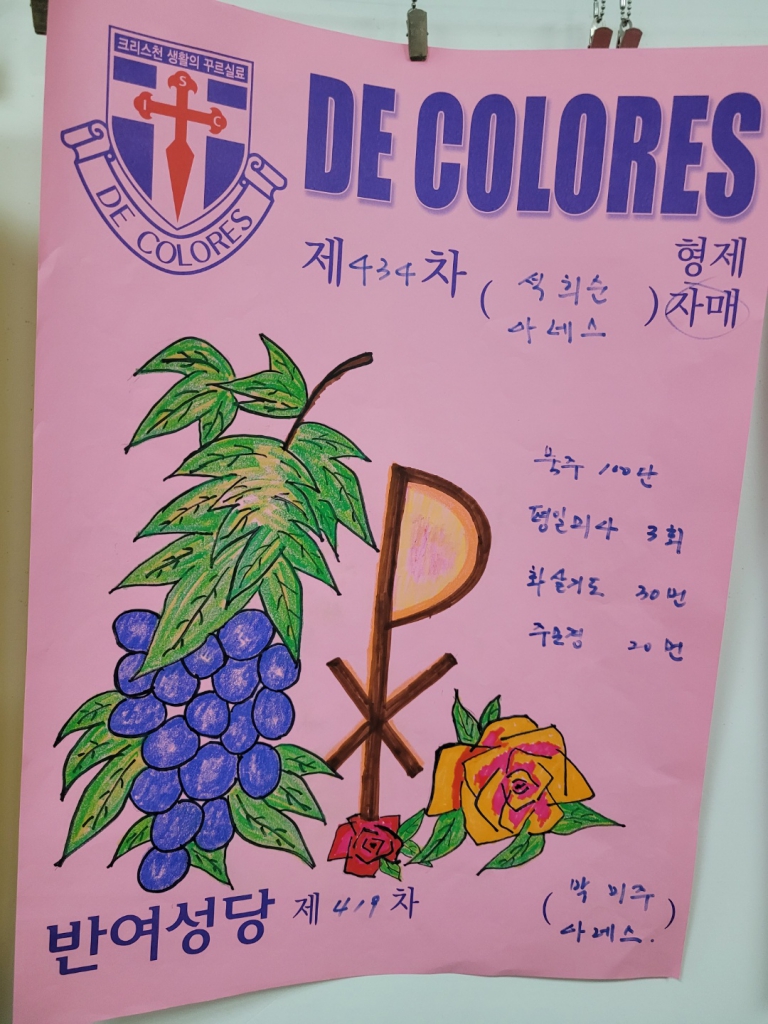 크리스천 생활의 꾸르실료
S
I C
DE COLORES
DE COLORES
제434차 (석희순 아녜스) 형제 자매
묵주 100단
평일미사 3회
화살기도 30번
주모경 20번
반여성당 제419차 (박미주 아녜스.)